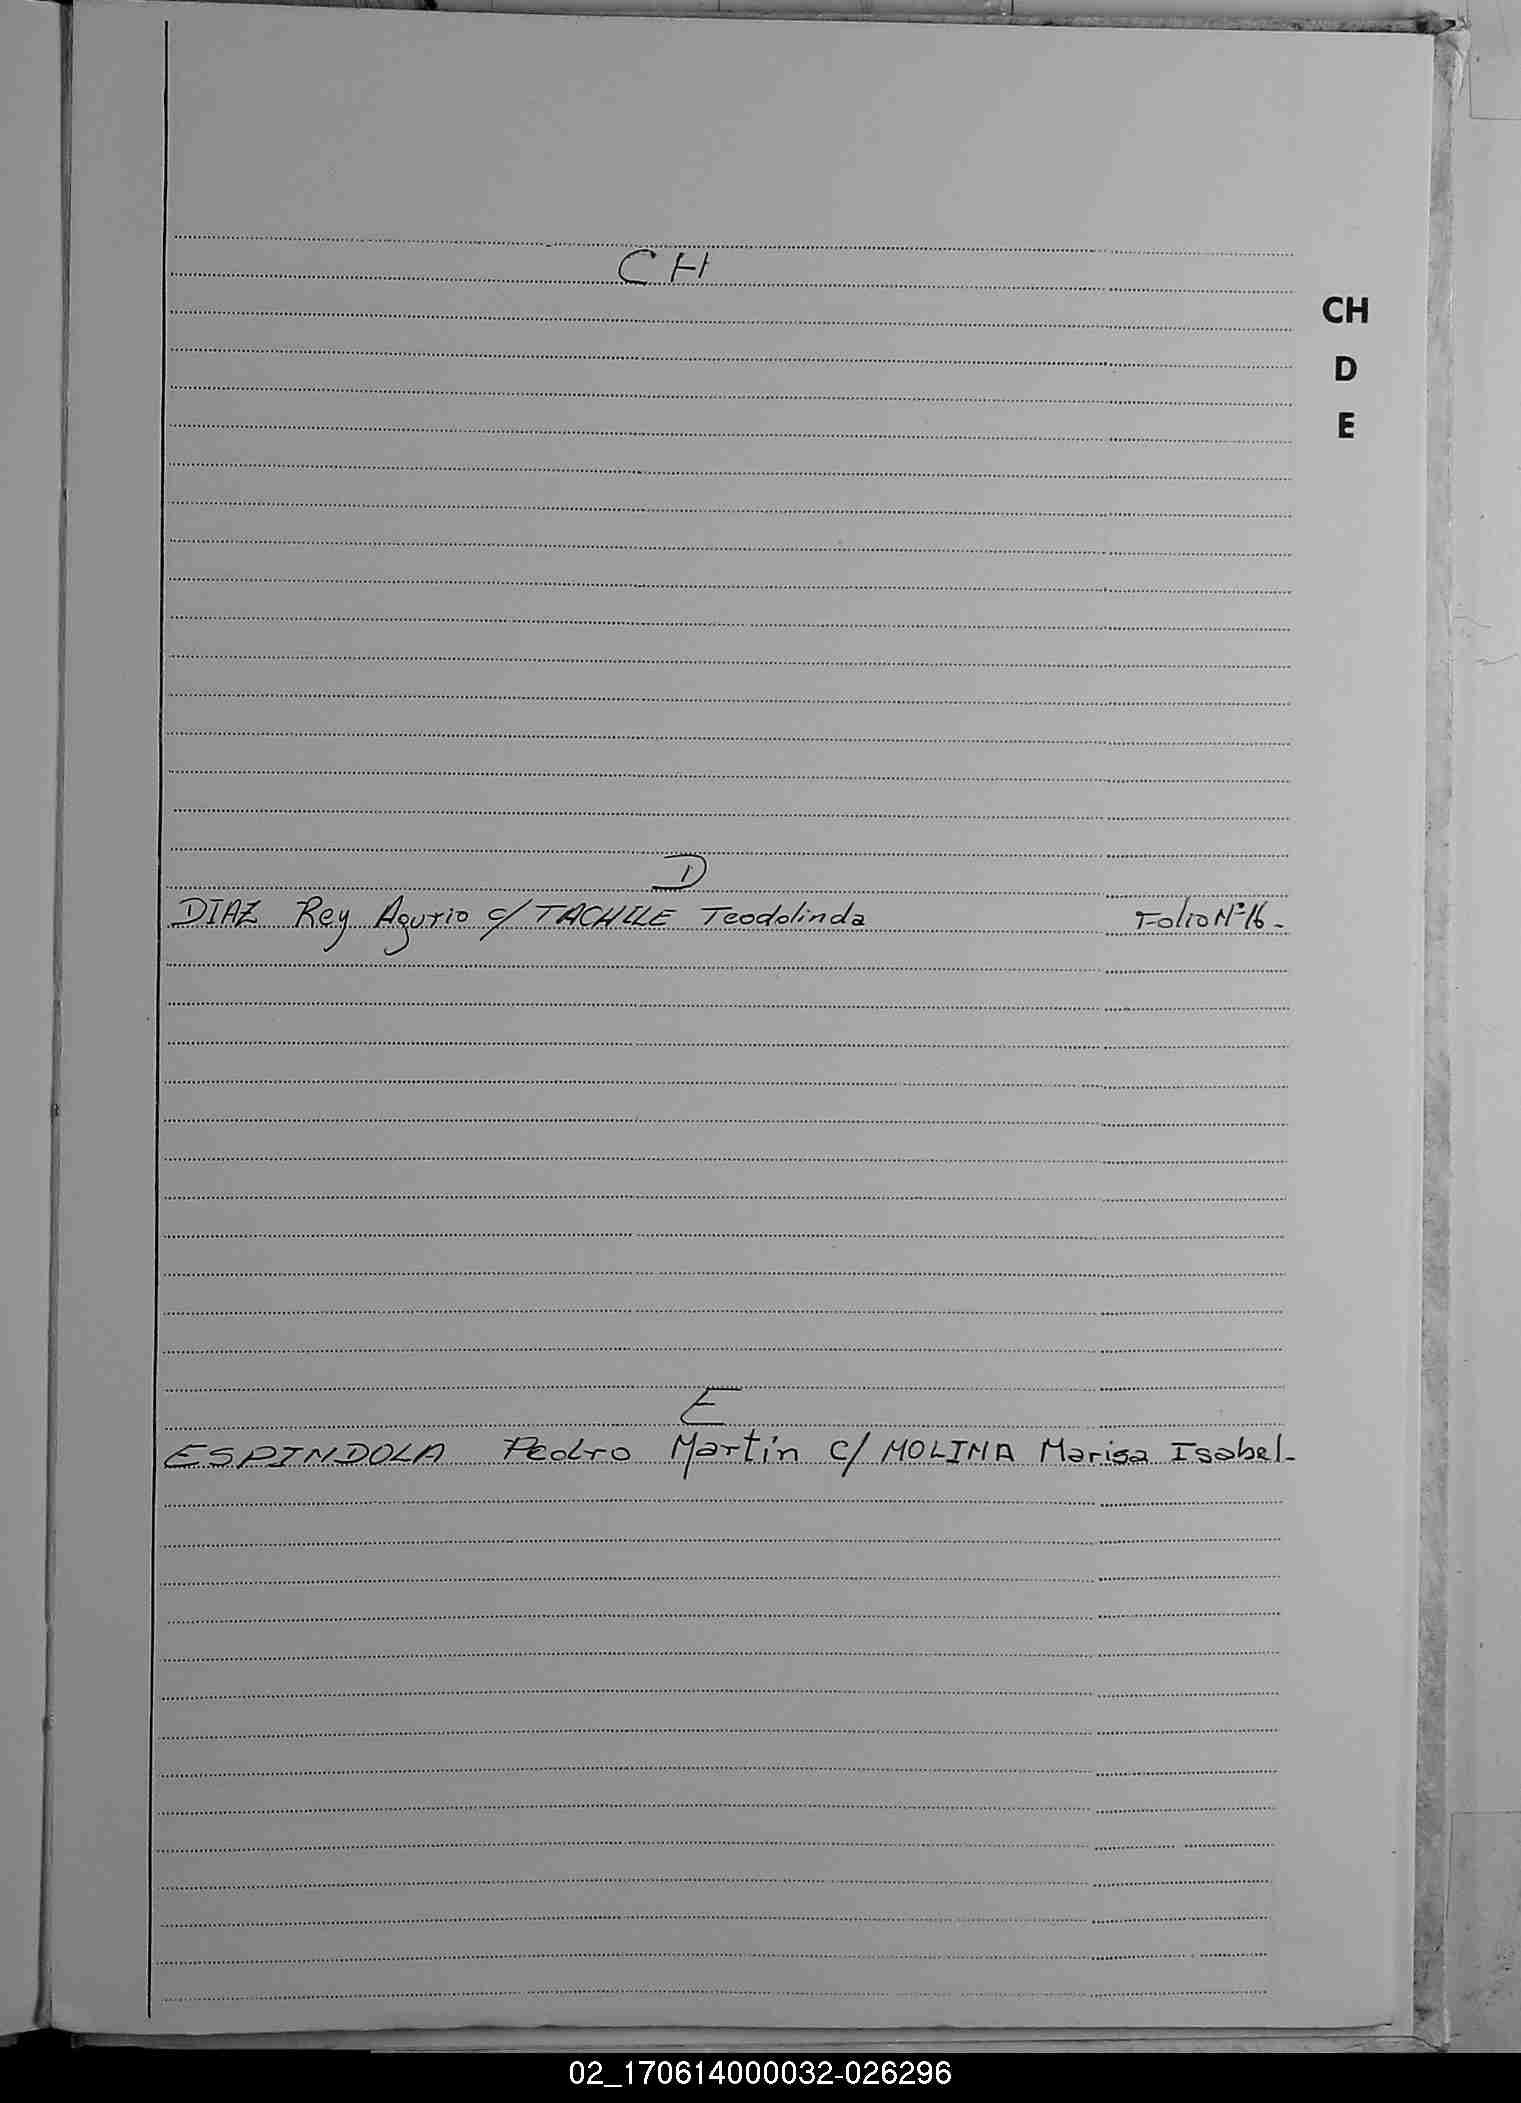 CH
CH
D
E
D
DIAZ Rey Agurio c/ TACHILE Teodolinda Folio Nº 16.-
E
ESPINDOLA Pedro Martín c/ MOLINA Marisa Isabel.-
02_170614000032-026296